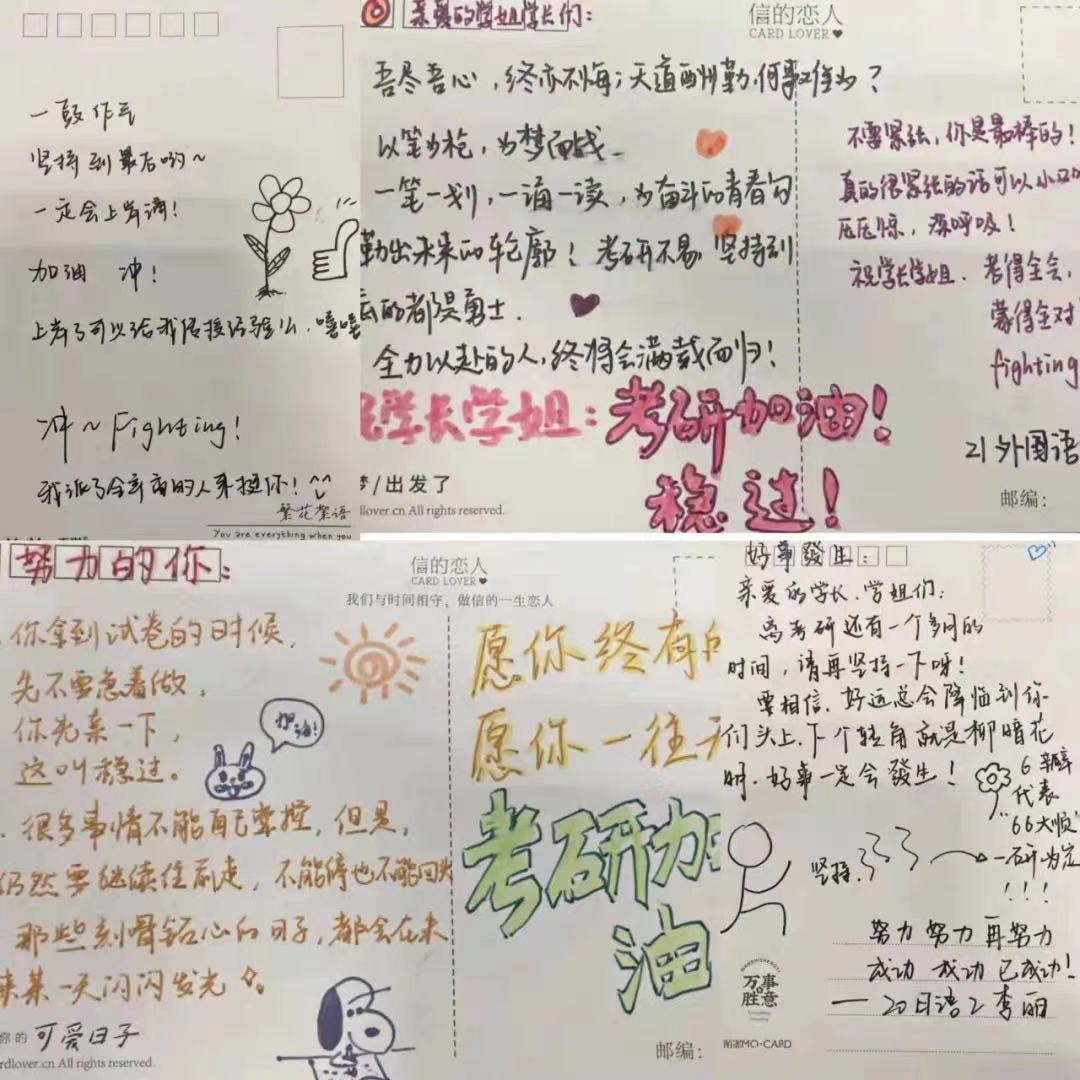 一鼓作气
坚持到最后哟~
一定会上岸滴!
加油 冲!
上岸了可以给我传授经验么,嘻嘻
冲~Fighting!
我派了全宇宙的人来挺你!^^
繁花絮语
You are everything when you
亲爱的学姐学长们:
信的恋人
CARD LOVER
吾尽吾心,终亦不悔;天道酬勤,何事难为?
以笔为枪,为梦而战
一笔一划,一诵一读,为奋斗的青春句
勒出未来的轮廓!考研不易,坚持到
的都是勇士.
全力以赴的人,终将会满载而归!
学长学姐:考研加油!
稳过!
/出发了
llover.cn All rights reserved.
不要紧张,你是最棒的!
真的很紧张的话可以小口
压压惊,深呼吸!
祝学长学姐.考得全会,
蒙得全对
fighting
21外国语
邮编:
努力的你:
信的恋人
CARD LOVER
我们与时间相守,做信的一生恋人
你拿到试卷的时候,
先不要急着做,
你先亲一下,
这叫稳过。
加油!
很多事情不能自己掌控,但是,
仍然要继续往前走,不能停也不能回头
那些刻骨铭心的日子,都会在未
来某一天闪闪发光。
你的 可爱日子
rdlover.cn All rights reserved.
愿你终有
愿你一往
考研加
油
邮编:
好事發生:
亲爱的学长、学姐们:
离考研还有一个多月的
时间,请再坚持一下呀!
要相信,好运总会降临到你
们头上,下个转角就是柳暗花
明.好事一定会發生!
6瓣
代表
"66大顺"
坚持
一研为定
!!!
努力 努力 再努力
成功 成功 已成功!
——20日语2李丽
万事
胜意
陌湉MO-CARD